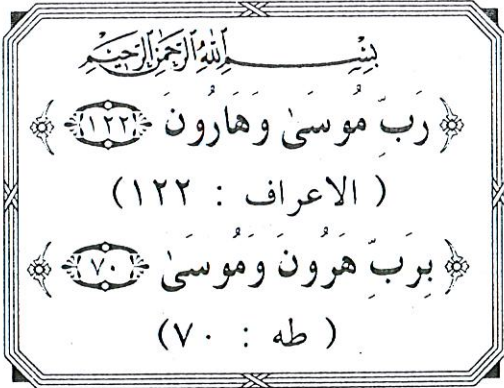 بِسْمِ اللهِ الرَّحْمٰنِ الرَّحِيْمِ
﴿ رَبِّ مُوسَىٰ وَهَارُونَ ١٢٢ ﴾
( الاعراف : ١٢٢)
﴿ بِرَبِّ هَرُونَ وَمُوسَىٰ ٧٠ ﴾
( طه : ٧٠)